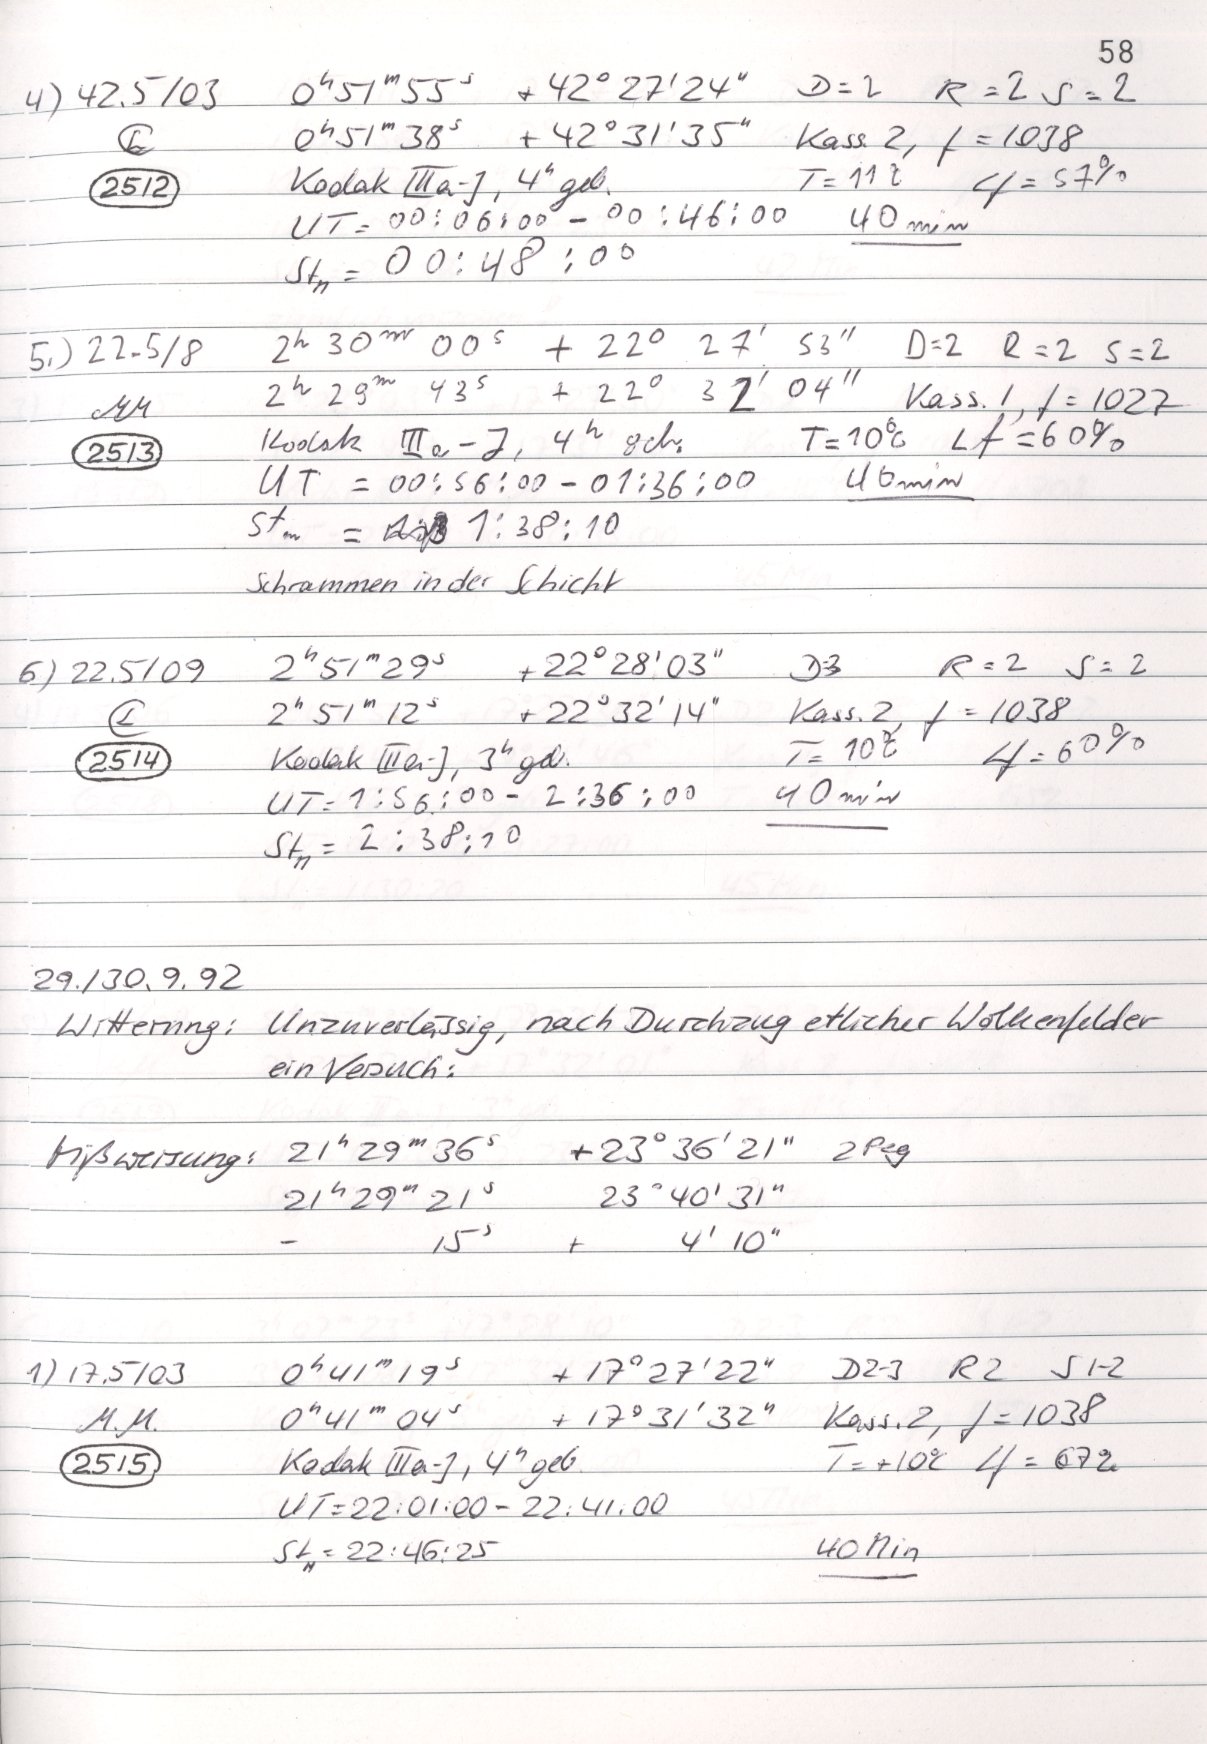 58
4) 42.5/03 0ʰ51ᵐ55ˢ +42°27'24" D=2 R=2 S=2
0ʰ51ᵐ38ˢ +42°31'35" Kass. 2, f=1038
2512 Kodak IIIa-J, 4ʰ geb. T=11°C Lf=57%
UT=00:06:00-00:46:00 40min
Stₙ=00:48:00
5.) 22.5/8 2ʰ 30ᵐ 00ˢ + 22° 27' 53" D=2 R=2 S=2
MM 2ʰ 29ᵐ 43ˢ + 22° 32' 04" Kass. 1, f=1027
2513 Kodak IIIa-J, 4ʰ geb. T=10°C Lf=60%
UT = 00:56:00-01:36:00 40min
Stₙ = 1:38:10
Schrammen in der Schicht
6) 22.5/09 2ʰ51ᵐ29ˢ +22°28'03" D=3 R=2 S=2
2ʰ51ᵐ12ˢ +22°32'14" Kass. 2, f=1038
2514 Kodak IIIa-J, 3ʰ geb. T=10°C Lf=60%
UT=1:56:00-2:36:00 40min
Stₙ=2:38:10
29./30.9.92
Witterung: Unzuverlässig, nach Durchzug etlicher Wolkenfelder
ein Versuch:
Mißweisung: 21ʰ29ᵐ36ˢ +23°36'21" 2Peg
21ʰ29ᵐ21ˢ 23°40'31"
- 15ˢ + 4'10"
1) 17.5/03 0ʰ41ᵐ19ˢ +17°27'22" D2-3 R2 S1-2
M.M. 0ʰ41ᵐ04ˢ +17°31'32" Kass. 2, f=1038
2515 Kodak IIIa-J, 4ʰ geb. T=+10°C Lf=67%
UT=22:01:00-22:41:00
Stₙ=22:46:25 40Min